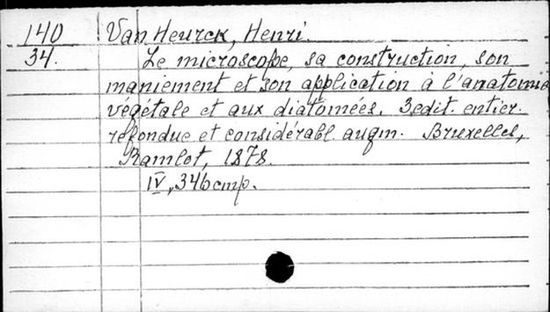 140 Van Heurck, Henri.
34. Le microscope, sa construction, son
maniement et son application à l'anatomie
végétale et aux diatomées. 3 edit. entier.
refondue et considérabl. augm. Bruxelles,
Ramlot, 1878.
IV, 346 стр.